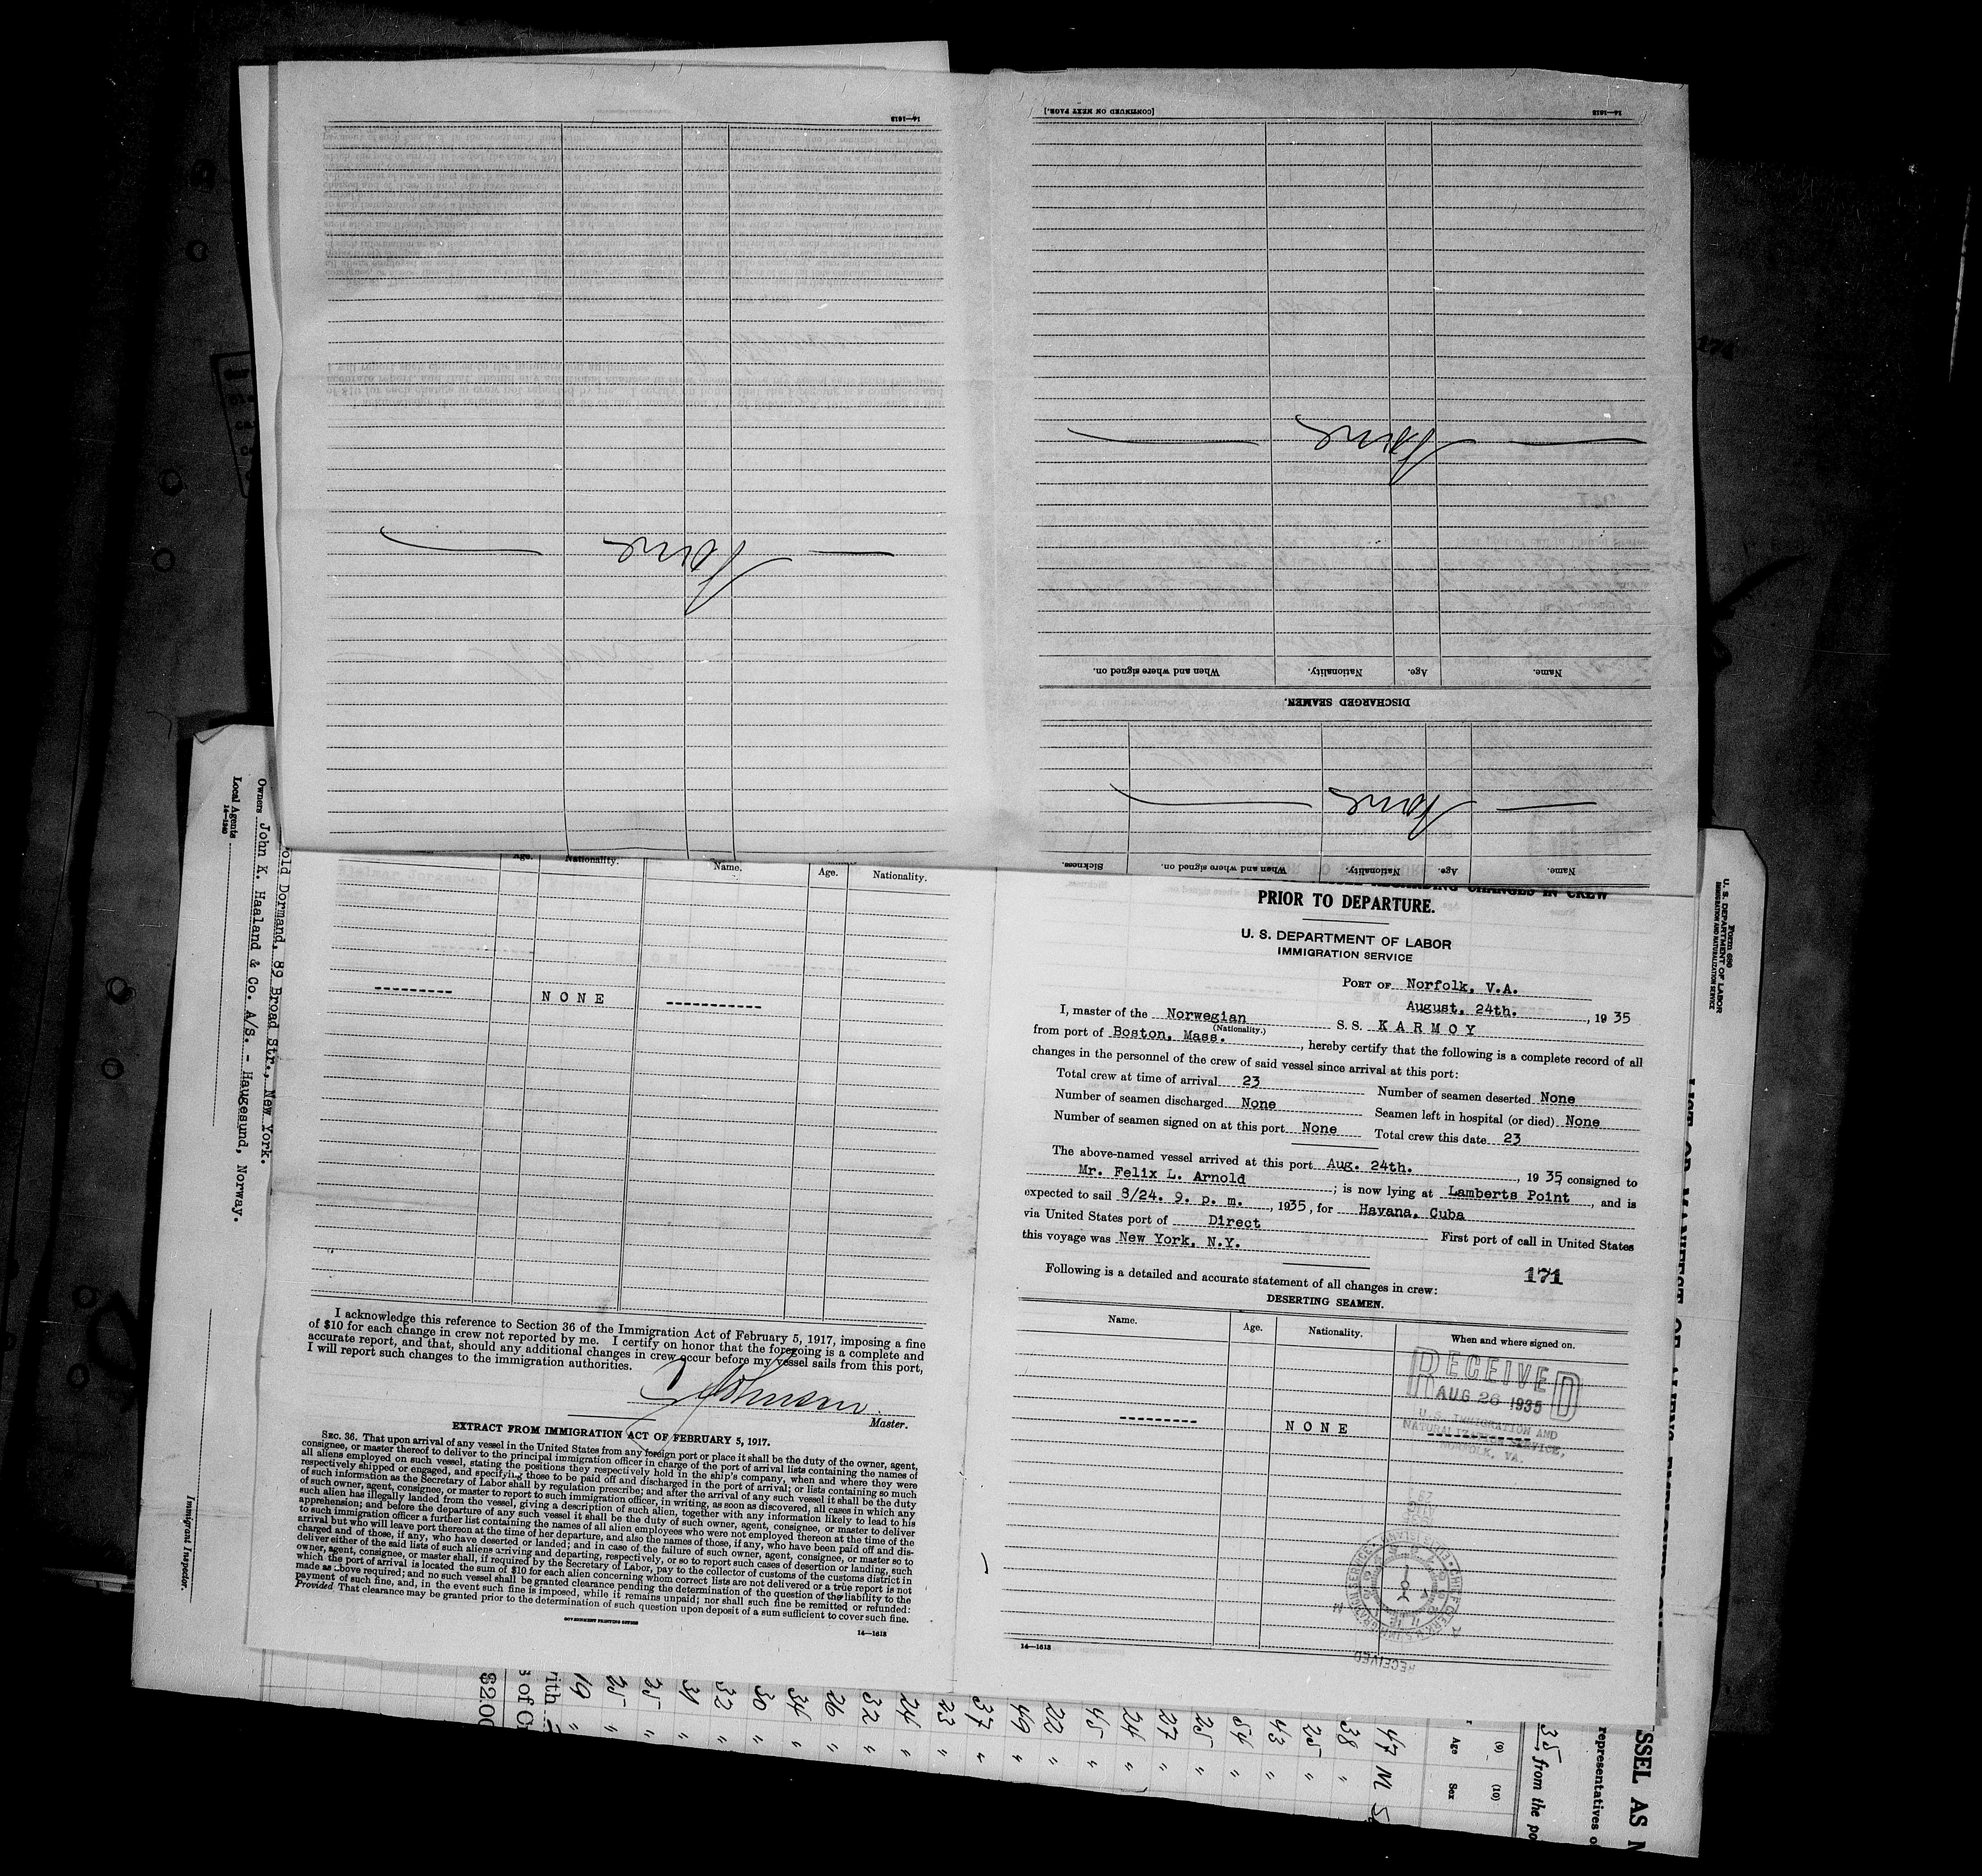 14—1613
[CONTINUED ON NEXT PAGE.]
14—1613
None
None
Name. Age. Nationality. When and where signed on.
DISCHARGED SEAMEN.
None
Name. Age. Nationality. When and where signed on. Sickness.
Age. Nationality. Name. Age. Nationality.
NONE
I acknowledge this reference to Section 36 of the Immigration Act of February 5, 1917, imposing a fine
of $10 for each change in crew not reported by me. I certify on honor that the foregoing is a complete and
accurate report, and that, should any additional changes in crew occur before my vessel sails from this port,
I will report such changes to the immigration authorities.
Johnsen
Master.
EXTRACT FROM IMMIGRATION ACT OF FEBRUARY 5, 1917.
SEC. 36. That upon arrival of any vessel in the United States from any foreign port or place it shall be the duty of the owner, agent,
consignee, or master thereof to deliver to the principal immigration officer in charge of the port of arrival lists containing the names of
all aliens employed on such vessel, stating the positions they respectively hold in the ship's company, when and where they were
respectively shipped or engaged, and specifying those to be paid off and discharged in the port of arrival; or lists containing so much
of such information as the Secretary of Labor shall by regulation prescribe; and after the arrival of any such vessel it shall be the duty
of such owner, agent, consignee, or master to report to such immigration officer, in writing, as soon as discovered, all cases in which any
such alien has illegally landed from the vessel, giving a description of such alien, together with any information likely to lead to his
apprehension; and before the departure of any such vessel it shall be the duty of such owner, agent, consignee, or master to deliver
to such immigration officer a further list containing the names of all alien employees who were not employed thereon at the time of the
arrival but who will leave port thereon at the time of her departure, and also the names of those, if any, who have been paid off and dis-
charged and of those, if any, who have deserted or landed; and in case of the failure of such owner, agent, consignee, or master so to
deliver either of the said lists of such aliens arriving and departing, respectively, or so to report such cases of desertion or landing, such
owner, agent, consignee, or master shall, if required by the Secretary of Labor, pay to the collector of customs of the customs district in
which the port of arrival is located the sum of $10 for each alien concerning whom correct lists are not delivered or a true report is not
made as above required; and no such vessel shall be granted clearance pending the determination of the question of the liability to the
payment of such fine, and, in the event such fine is imposed, while it remains unpaid; nor shall such fine be remitted or refunded:
Provided That clearance may be granted prior to the determination of such question upon deposit of a sum sufficient to cover such fine.
GOVERNMENT PRINTING OFFICE
14—1613
REGARDING CHANGES IN CREW
PRIOR TO DEPARTURE.
U. S. DEPARTMENT OF LABOR
IMMIGRATION SERVICE
PORT OF Norfolk, V.A.
August, 24th., 1935
I, master of the Norwegian S.S. KARMOY
(Nationality.)
from port of Boston, Mass., hereby certify that the following is a complete record of all
changes in the personnel of the crew of said vessel since arrival at this port:
Total crew at time of arrival 23 Number of seamen deserted None
Number of seamen discharged None Seamen left in hospital (or died) None
Number of seamen signed on at this port None Total crew this date 23
The above-named vessel arrived at this port Aug. 24th., 1935 consigned to
Mr. Felix L. Arnold; is now lying at Lamberts Point, and is
expected to sail 8/24. 9. p. m., 1935, for Havana, Cuba
via United States port of Direct First port of call in United States
this voyage was New York, N.Y.
171
Following is a detailed and accurate statement of all changes in crew:
DESERTING SEAMEN.
Name. Age. Nationality. When and where signed on.
RECEIVED
AUG 26 1935
U.S. IMMIGRATION AND
NATURALIZATION SERVICE,
NORFOLK, VA.
NONE
RECEIVED
14—1613
old Dormand, 89 Broad Str., New York.
Owners John K. Haaland & Co. A/S. - Haugesund, Norway.
Local Agents
14—1240
Immigrant Inspector.
Form 680
U. S. DEPARTMENT OF LABOR
IMMIGRATION AND NATURALIZATION SERVICE
SSEL AS
representatives o
35, from the po
(9) (10)
Age Sex
47 M
38 "
25 "
43 "
54 "
25 "
27 "
24 "
45 "
22 "
49 "
37 "
23 "
24 "
32 "
26 "
34 "
30 "
32 "
31 "
25 "
25 "
19 "
with
s of C
$2.00